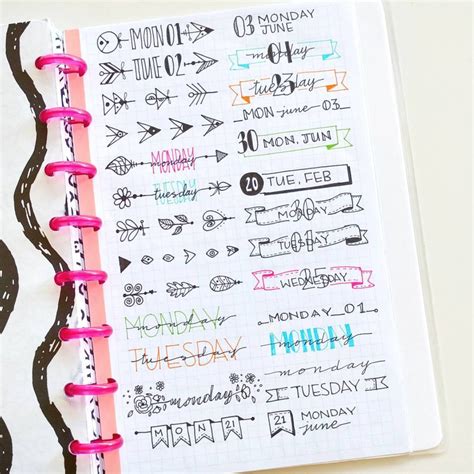 MON 01
TUE 02
MONDAY
tuesday
MONDAY
monday
TUESDAY
tuesday
monday
MON 21
03 MONDAY
JUNE
monday
tuesday
23
MON june 03
30 MON, JUN
20 TUE, FEB
MONDAY
TUESDAY
WEDNESDAY
25
MONDAY_01
MONDAY
monday
TUESDAY
21 MONDAY
june